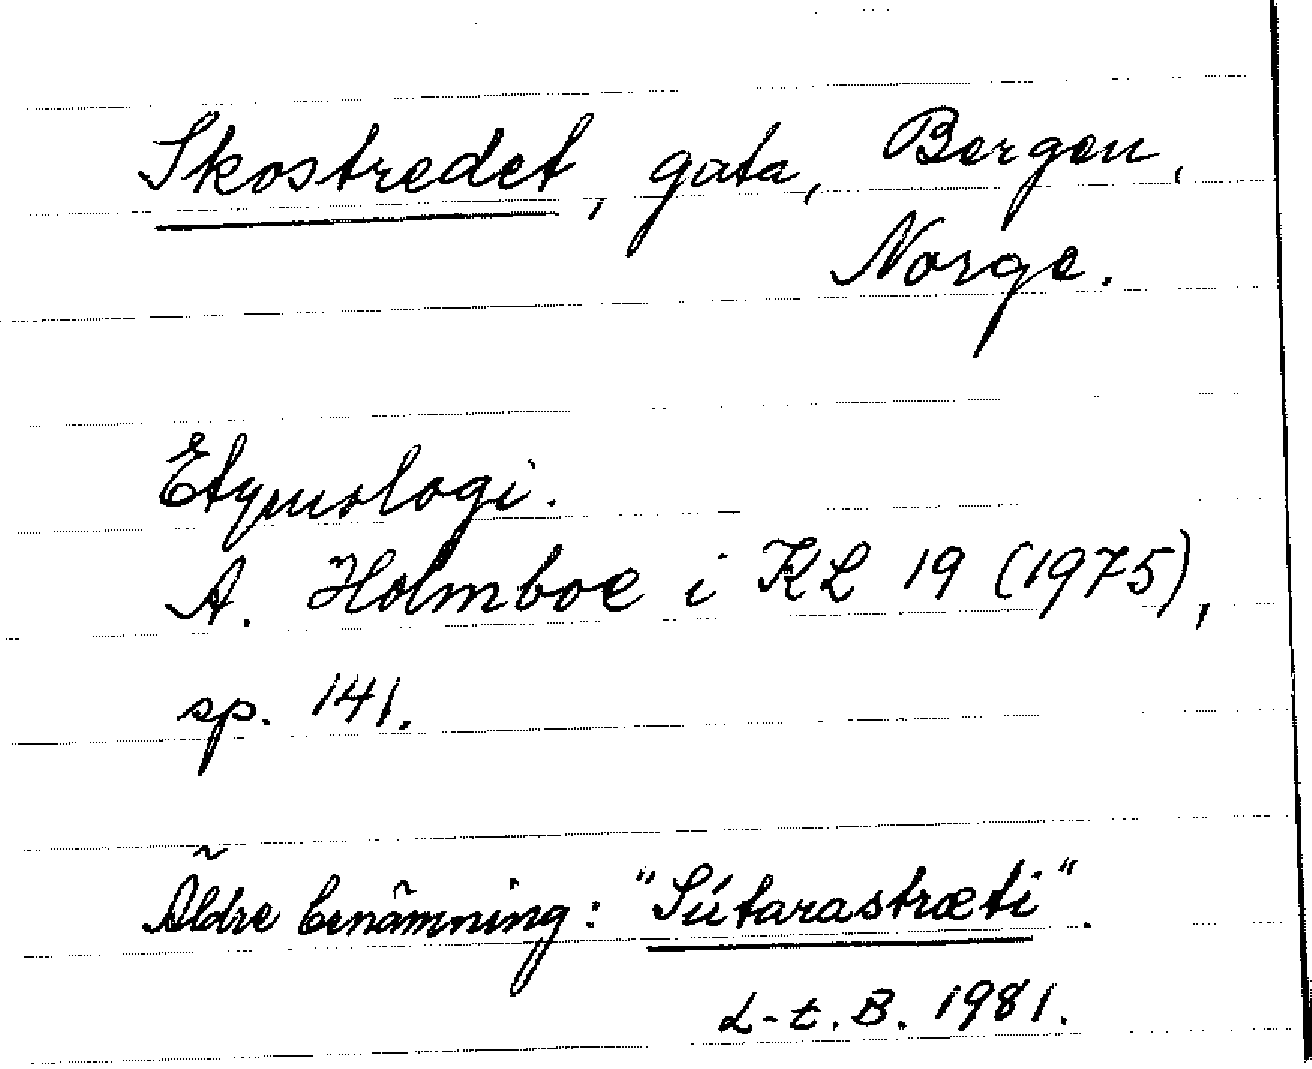 Skostredet, gata, Bergen,
Norge.
Etymologi.
A. Holmboe i KL 19 (1975),
sp. 141.
Äldre benämning: "Sútarastræti".
L-t. B. 1981.